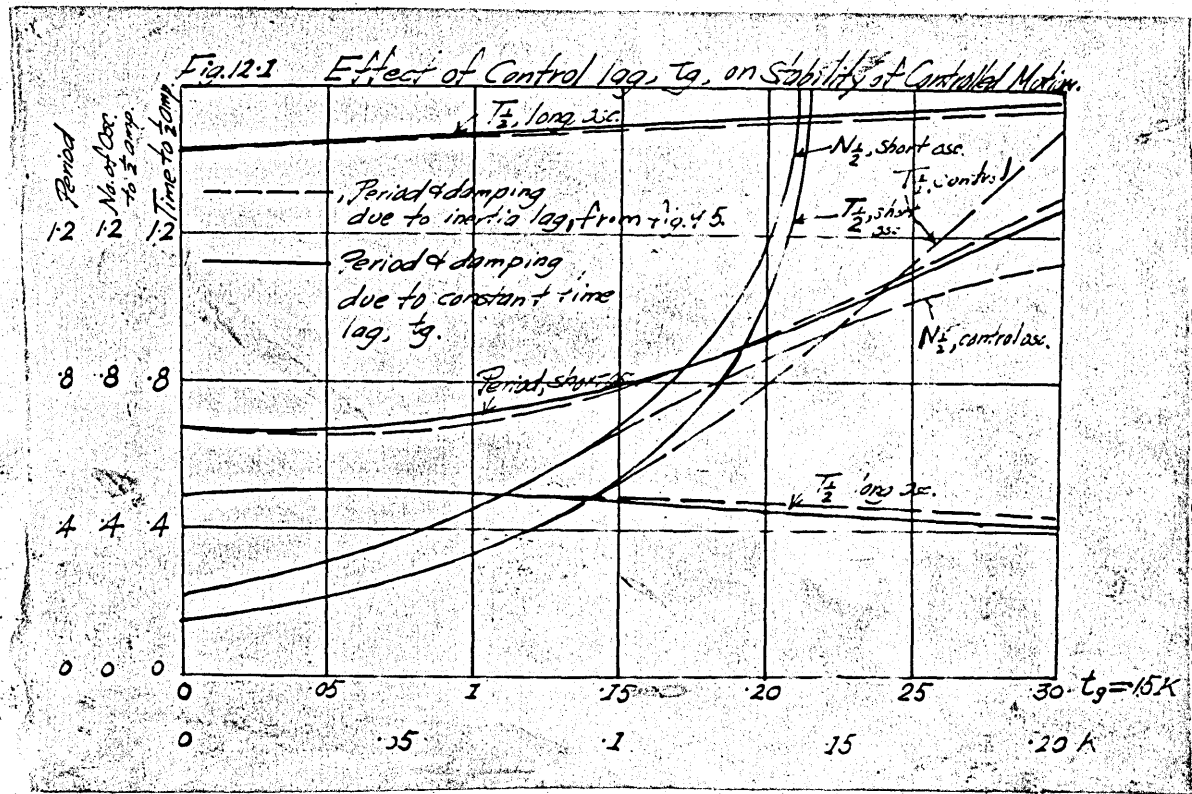 Fig.12.1 Effect of Control lag, Tg, on Stability of Controlled Motion.
Period
No. of Osc. to ½ amp.
Time to ½ amp.
T½, long osc.
N½, short osc.
T½, control
Period & damping
due to inertia lag, from fig. 4.5.
T½, short
osc
1.2 1.2 1.2
Period & damping
due to constant time
lag, tg.
N½, control osc.
.8 .8 .8
Period, short osc
T½ long osc.
.4 .4 .4
0 0 0
0 .05 .1 .15 .20 .25 .30 tg=1.5K
0 .05 .1 .15 .20 K